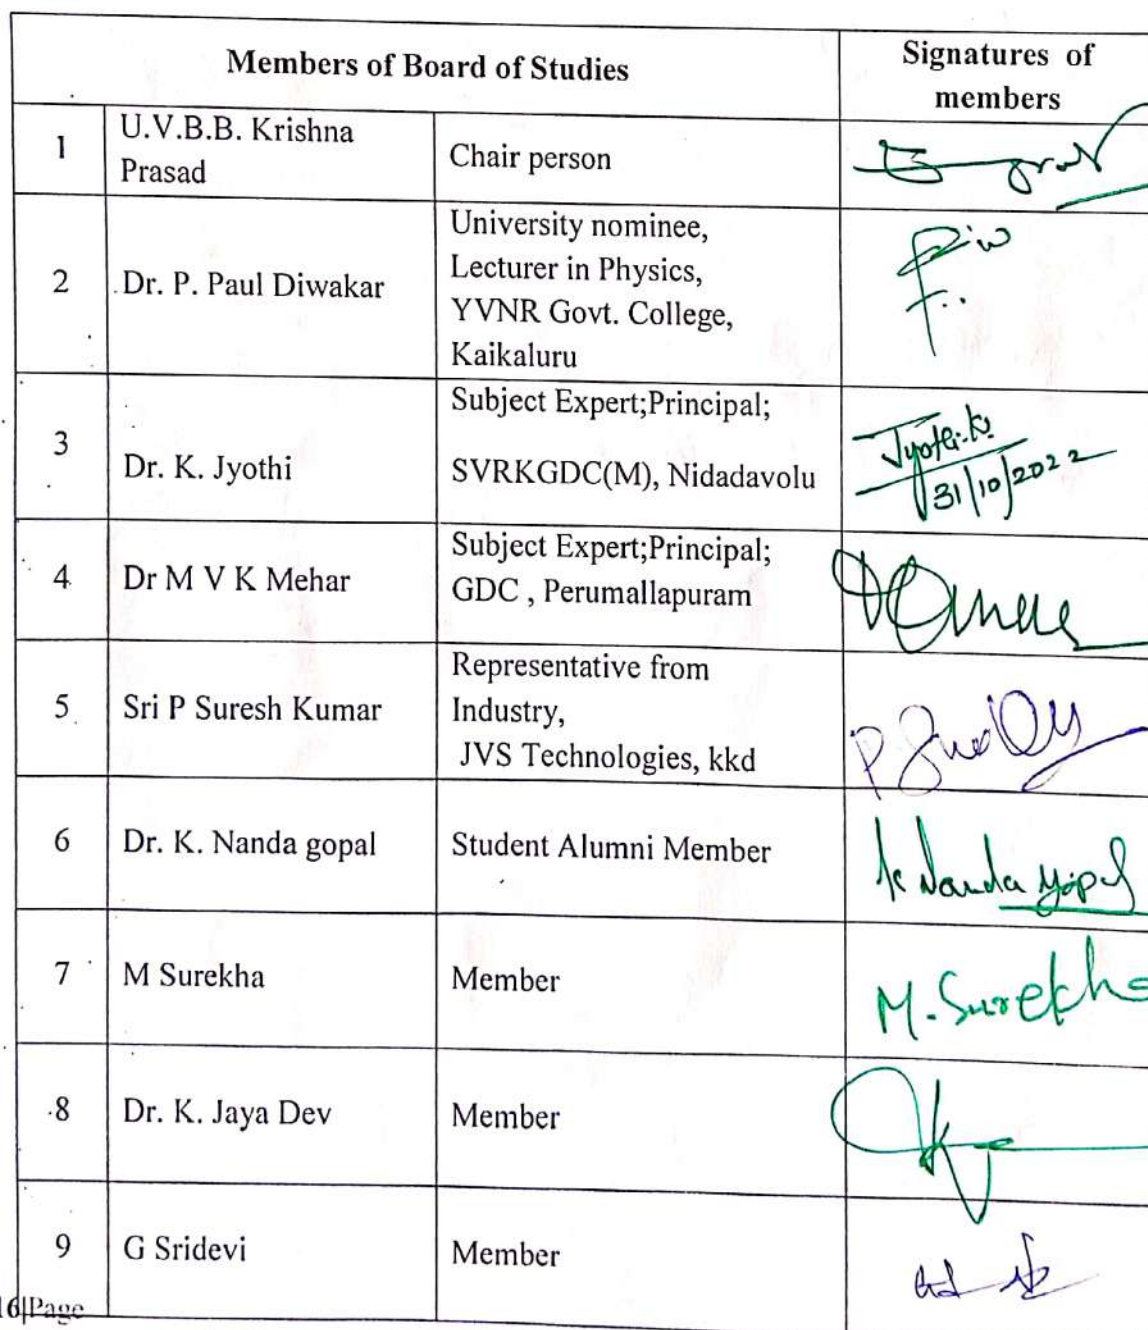 Members of Board of Studies
Signatures of
members
1
U.V.B.B. Krishna
Prasad
Chair person
2
Dr. P. Paul Diwakar
University nominee,
Lecturer in Physics,
YVNR Govt. College,
Kaikaluru
3
Dr. K. Jyothi
Subject Expert;Principal;
SVRKGDC(M), Nidadavolu
Jyothi.K
31/10/2022
4
Dr M V K Mehar
Subject Expert;Principal;
GDC , Perumallapuram
5
Sri P Suresh Kumar
Representative from
Industry,
JVS Technologies, kkd
6
Dr. K. Nanda gopal
Student Alumni Member
K Nanda gopal
7
M Surekha
Member
M. Surekha
8
Dr. K. Jaya Dev
Member
9
G Sridevi
Member
16|Page